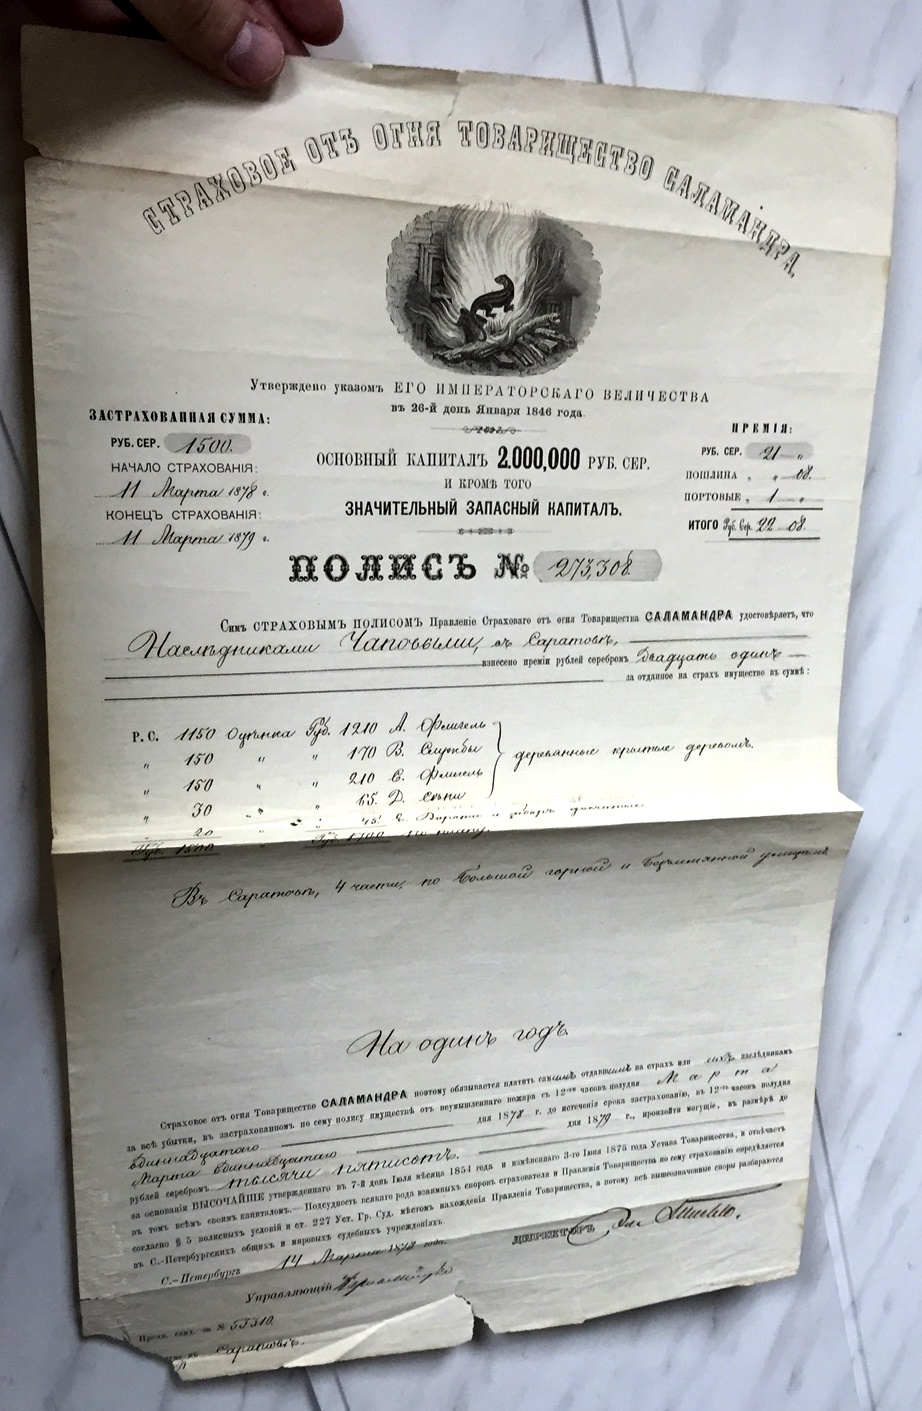 СТРАХОВОЕ ОТЪ ОГНЯ ТОВАРИЩЕСТВО САЛАМАНДРА,
Утверждено указомъ ЕГО ИМПЕРАТОРСКАГО ВЕЛИЧЕСТВА
въ 26-й день Января 1846 года.
ЗАСТРАХОВАННАЯ СУММА:
РУБ. СЕР. 1500.
НАЧАЛО СТРАХОВАНІЯ:
11 Марта 1878 г.
КОНЕЦЪ СТРАХОВАНІЯ:
11 Марта 1879 г.
ОСНОВНЫЙ КАПИТАЛЪ 2.000,000 РУБ. СЕР.
И КРОМѢ ТОГО
ЗНАЧИТЕЛЬНЫЙ ЗАПАСНЫЙ КАПИТАЛЪ.
ПРЕМІЯ:
РУБ. СЕР. 21 — „
ПОШЛИНА „ „ — 08.
ПОРТОВЫЕ „ 1 — „
ИТОГО Руб. Сер. 22 — 08.
ПОЛИСЪ № 273,308.
Симъ СТРАХОВЫМЪ ПОЛИСОМЪ Правленіе Страховаго отъ огня Товарищества САЛАМАНДРА удостовѣряетъ, что
Наслѣдниками въ Саратовѣ,
взнесено преміи рублей серебромъ Двадцать одинъ —
за отданное на страхъ имущество въ суммѣ:
Р. С. 1150 Оцѣнка Руб. 1210 А. Флигель
„ 150 „ „ 170 В. Службы
„ 150 „ „ 210 С. Флигель
деревянные крытые деревомъ.
„ 30 „ „ 65. Д. Сѣни
„ 20 „ „ 45 Е. Ворота и заборъ
Руб. 1500 Руб. 1700
Въ Саратовѣ, 4 части, по Большой горной и Безъимянной улицамъ
На одинъ годъ.
Страховое отъ огня Товарищество САЛАМАНДРА поэтому обязывается платить самимъ отдавшимъ на страхъ или ихъ наслѣдникамъ
за всѣ убытки, въ застрахованномъ по сему полису имуществѣ отъ неумышленнаго пожара съ 12-ти часовъ полудня Марта
одиннадцатаго дня 1878 г. до истеченія срока застрахованію, въ 12-ть часовъ полудня
Марта одиннадцатаго дня 1879 г., произойти могущіе, въ размѣрѣ до
рублей серебромъ тысячи пятисотъ.
на основаніи ВЫСОЧАЙШЕ утвержденнаго въ 7-й день Іюля мѣсяца 1854 года и измѣненнаго 3-го Іюня 1875 года Устава Товарищества, и отвѣчаетъ
въ томъ всѣмъ своимъ капиталомъ. — Подсудность всякаго рода взаимныхъ споровъ страхователя и Правленія Товарищества по сему страхованію опредѣляется
согласно § 5 полисныхъ условій и ст. 227 Уст. Гр. Суд. мѣстомъ нахожденія Правленія Товарищества, а потому всѣ вышеозначенные споры разбираются
въ С.-Петербургскихъ общихъ и мировыхъ судебныхъ учрежденіяхъ.
С.-Петербургъ 14 Марта 1878 года.
ДИРЕКТОРЪ
Управляющій
№ 55310.
Саратовѣ.